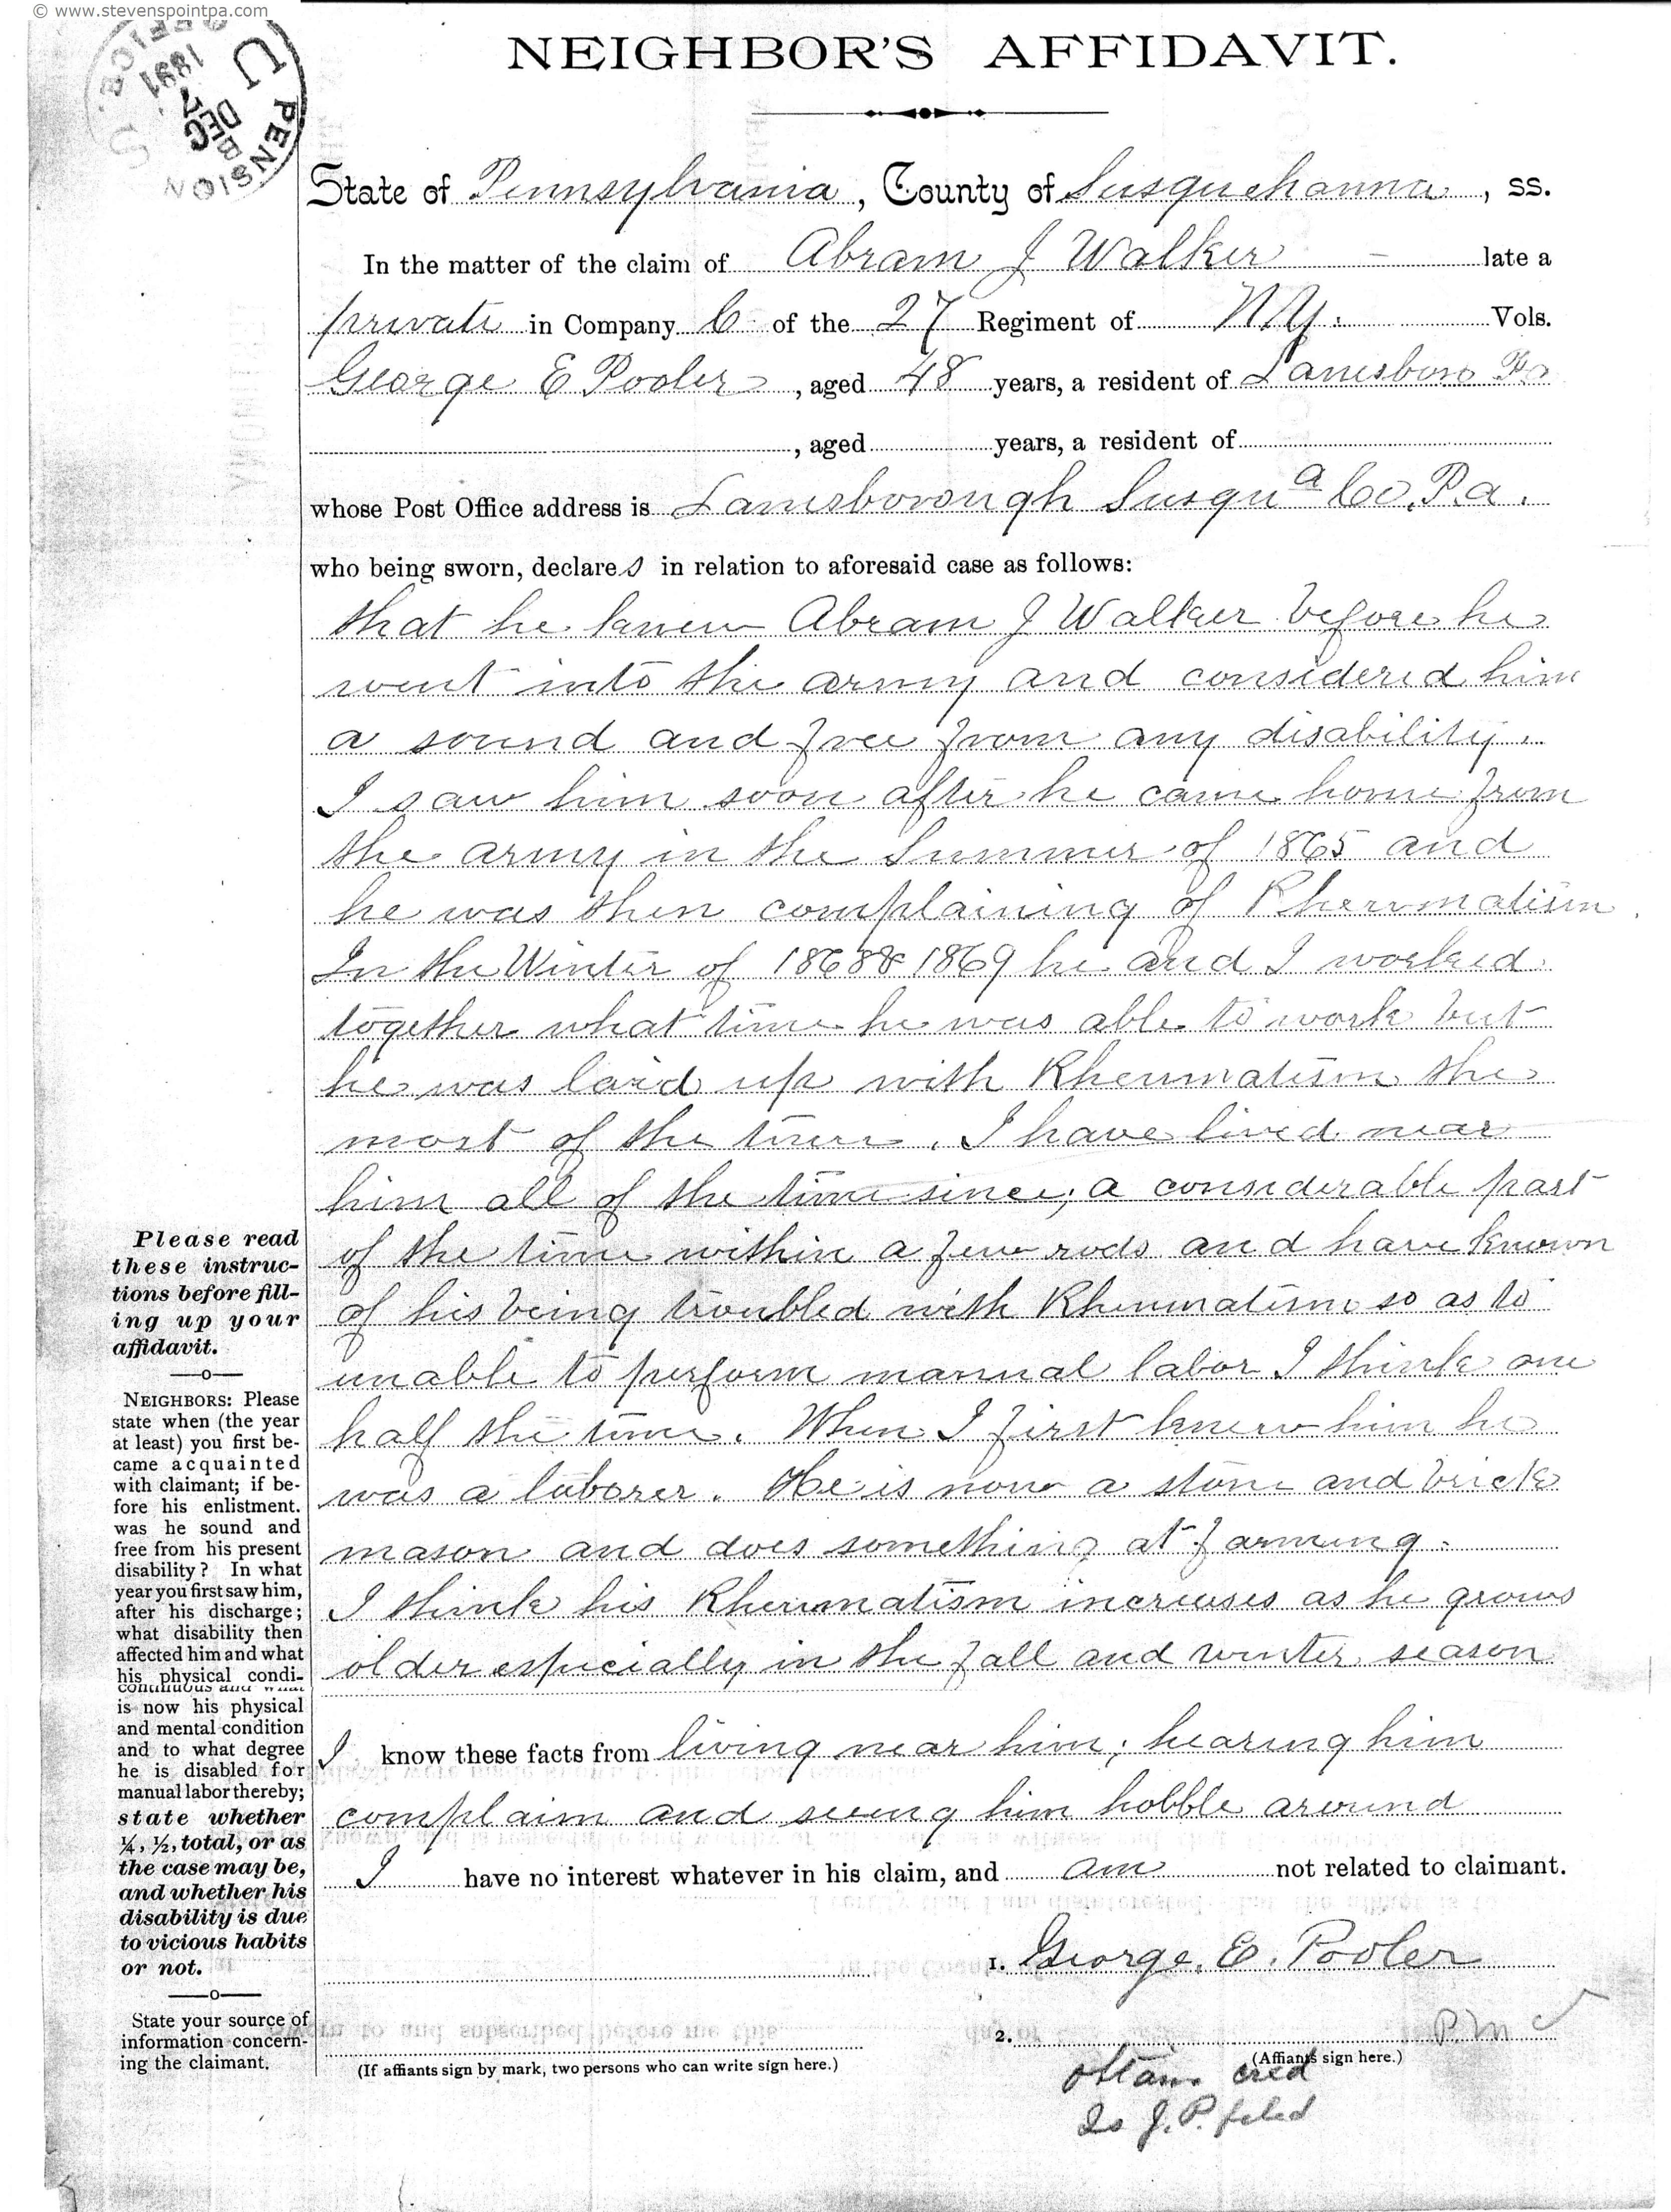 © www.stevenspointpa.com
U.S. PENSION OFFICE.
B
DEC
7
1891
NEIGHBOR'S AFFIDAVIT.
State of Pennsylvania, County of Susquehanna, ss.
In the matter of the claim of Abram J Walker late a
private in Company C of the 27 Regiment of N.Y. Vols.
George E Pooler, aged 48 years, a resident of Lanesboro Pa
, aged years, a resident of
whose Post Office address is Lanesborough Susqua Co. Pa.
who being sworn, declares in relation to aforesaid case as follows:
that he knew Abram J Walker before he
went into the army and considered him
a sound and free from any disability.
I saw him soon after he came home from
the army in the Summer of 1865 and
he was then complaining of Rheumatism.
In the Winter of 1868 & 1869 he and I worked
together what time he was able to work but
he was laid up with Rheumatism the
most of the time. I have lived near
him all of the time since; a considerable part
of the time within a few rods and have known
of his being troubled with Rheumatism so as to
unable to perform manual labor I think one
half the time. When I first knew him he
was a laborer. He is now a stone and brick
mason and does something at farming.
I think his Rheumatism increases as he grows
older especially in the fall and winter season
I know these facts from living near him; hearing him
complain and seeing him hobble around
I have no interest whatever in his claim, and am not related to claimant.
1. George. E. Pooler
2. P.M
(If affiants sign by mark, two persons who can write sign here.) (Affiants sign here.)
cred
J.P. filed
Please read
these instruc-
tions before fill-
ing up your
affidavit.
NEIGHBORS: Please
state when (the year
at least) you first be-
came acquainted
with claimant; if be-
fore his enlistment.
was he sound and
free from his present
disability? In what
year you first saw him,
after his discharge;
what disability then
affected him and what
his physical condi-
continuous and what
is now his physical
and mental condition
and to what degree
he is disabled for
manual labor thereby;
state whether
¼, ½, total, or as
the case may be,
and whether his
disability is due
to vicious habits
or not.
State your source of
information concern-
ing the claimant.